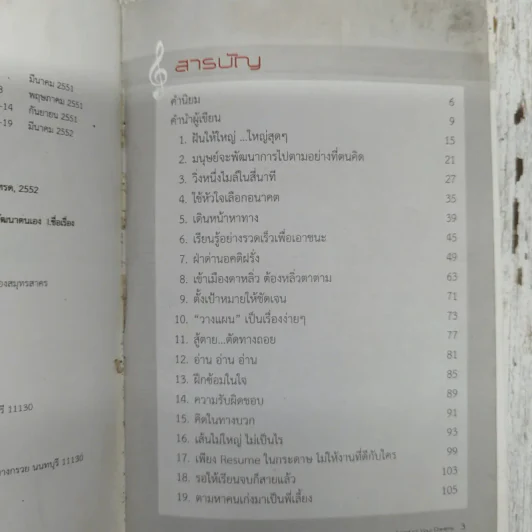 มีนาคม 2551
8 พฤษภาคม 2551
-14 กันยายน 2551
-19 มีนาคม 2552
2552
พัฒนาตนเอง I.ชื่อเรื่อง
สมุทรสาคร
11130
นนทบุรี 11130
สารบัญ
คำนิยม 6
คำนำผู้เขียน 9
1. ฝันให้ใหญ่ ...ใหญ่สุดๆ 15
2. มนุษย์จะพัฒนาการไปตามอย่างที่ตนคิด 21
3. วิ่งหนึ่งไมล์ในสี่นาที 27
4. ใช้หัวใจเลือกอนาคต 35
5. เดินหน้าหาทาง 39
6. เรียนรู้อย่างรวดเร็วเพื่อเอาชนะ 45
7. ฝ่าด่านอคติฝรั่ง 49
8. เข้าเมืองตาหลิ่ว ต้องหลิ่วตาตาม 63
9. ตั้งเป้าหมายให้ชัดเจน 71
10. “วางแผน” เป็นเรื่องง่ายๆ 73
11. สู้ตาย...ตัดทางถอย 77
12. อ่าน อ่าน อ่าน 81
13. ฝึกซ้อมในใจ 85
14. ความรับผิดชอบ 89
15. คิดในทางบวก 91
16. เส้นไม่ใหญ่ ไม่เป็นไร 93
17. เพียง Resume ในกระดาษ ไม่ให้งานที่ดีกับใคร 99
18. รอให้เรียนจบก็สายแล้ว 103
19. ตามหาคนเก่งมาเป็นพี่เลี้ยง 105
3